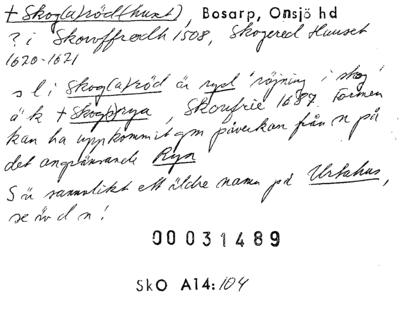 + Skog(a)röd(huset), Bosarp, Onsjö hd
? i Skowffreedh 1508, Skogered Huuset
1620-1621
s l i Skog(a)röd är ryd 'röjning i skog'
ä k + Skog(s)rya, Skoufrie 1687. Formen
kan ha uppkommit gm påverkan från n på
det angränsande Rya
S är sannolikt ett äldre namn på Urtahus,
se äv d n!
00031489
SkO A14:104